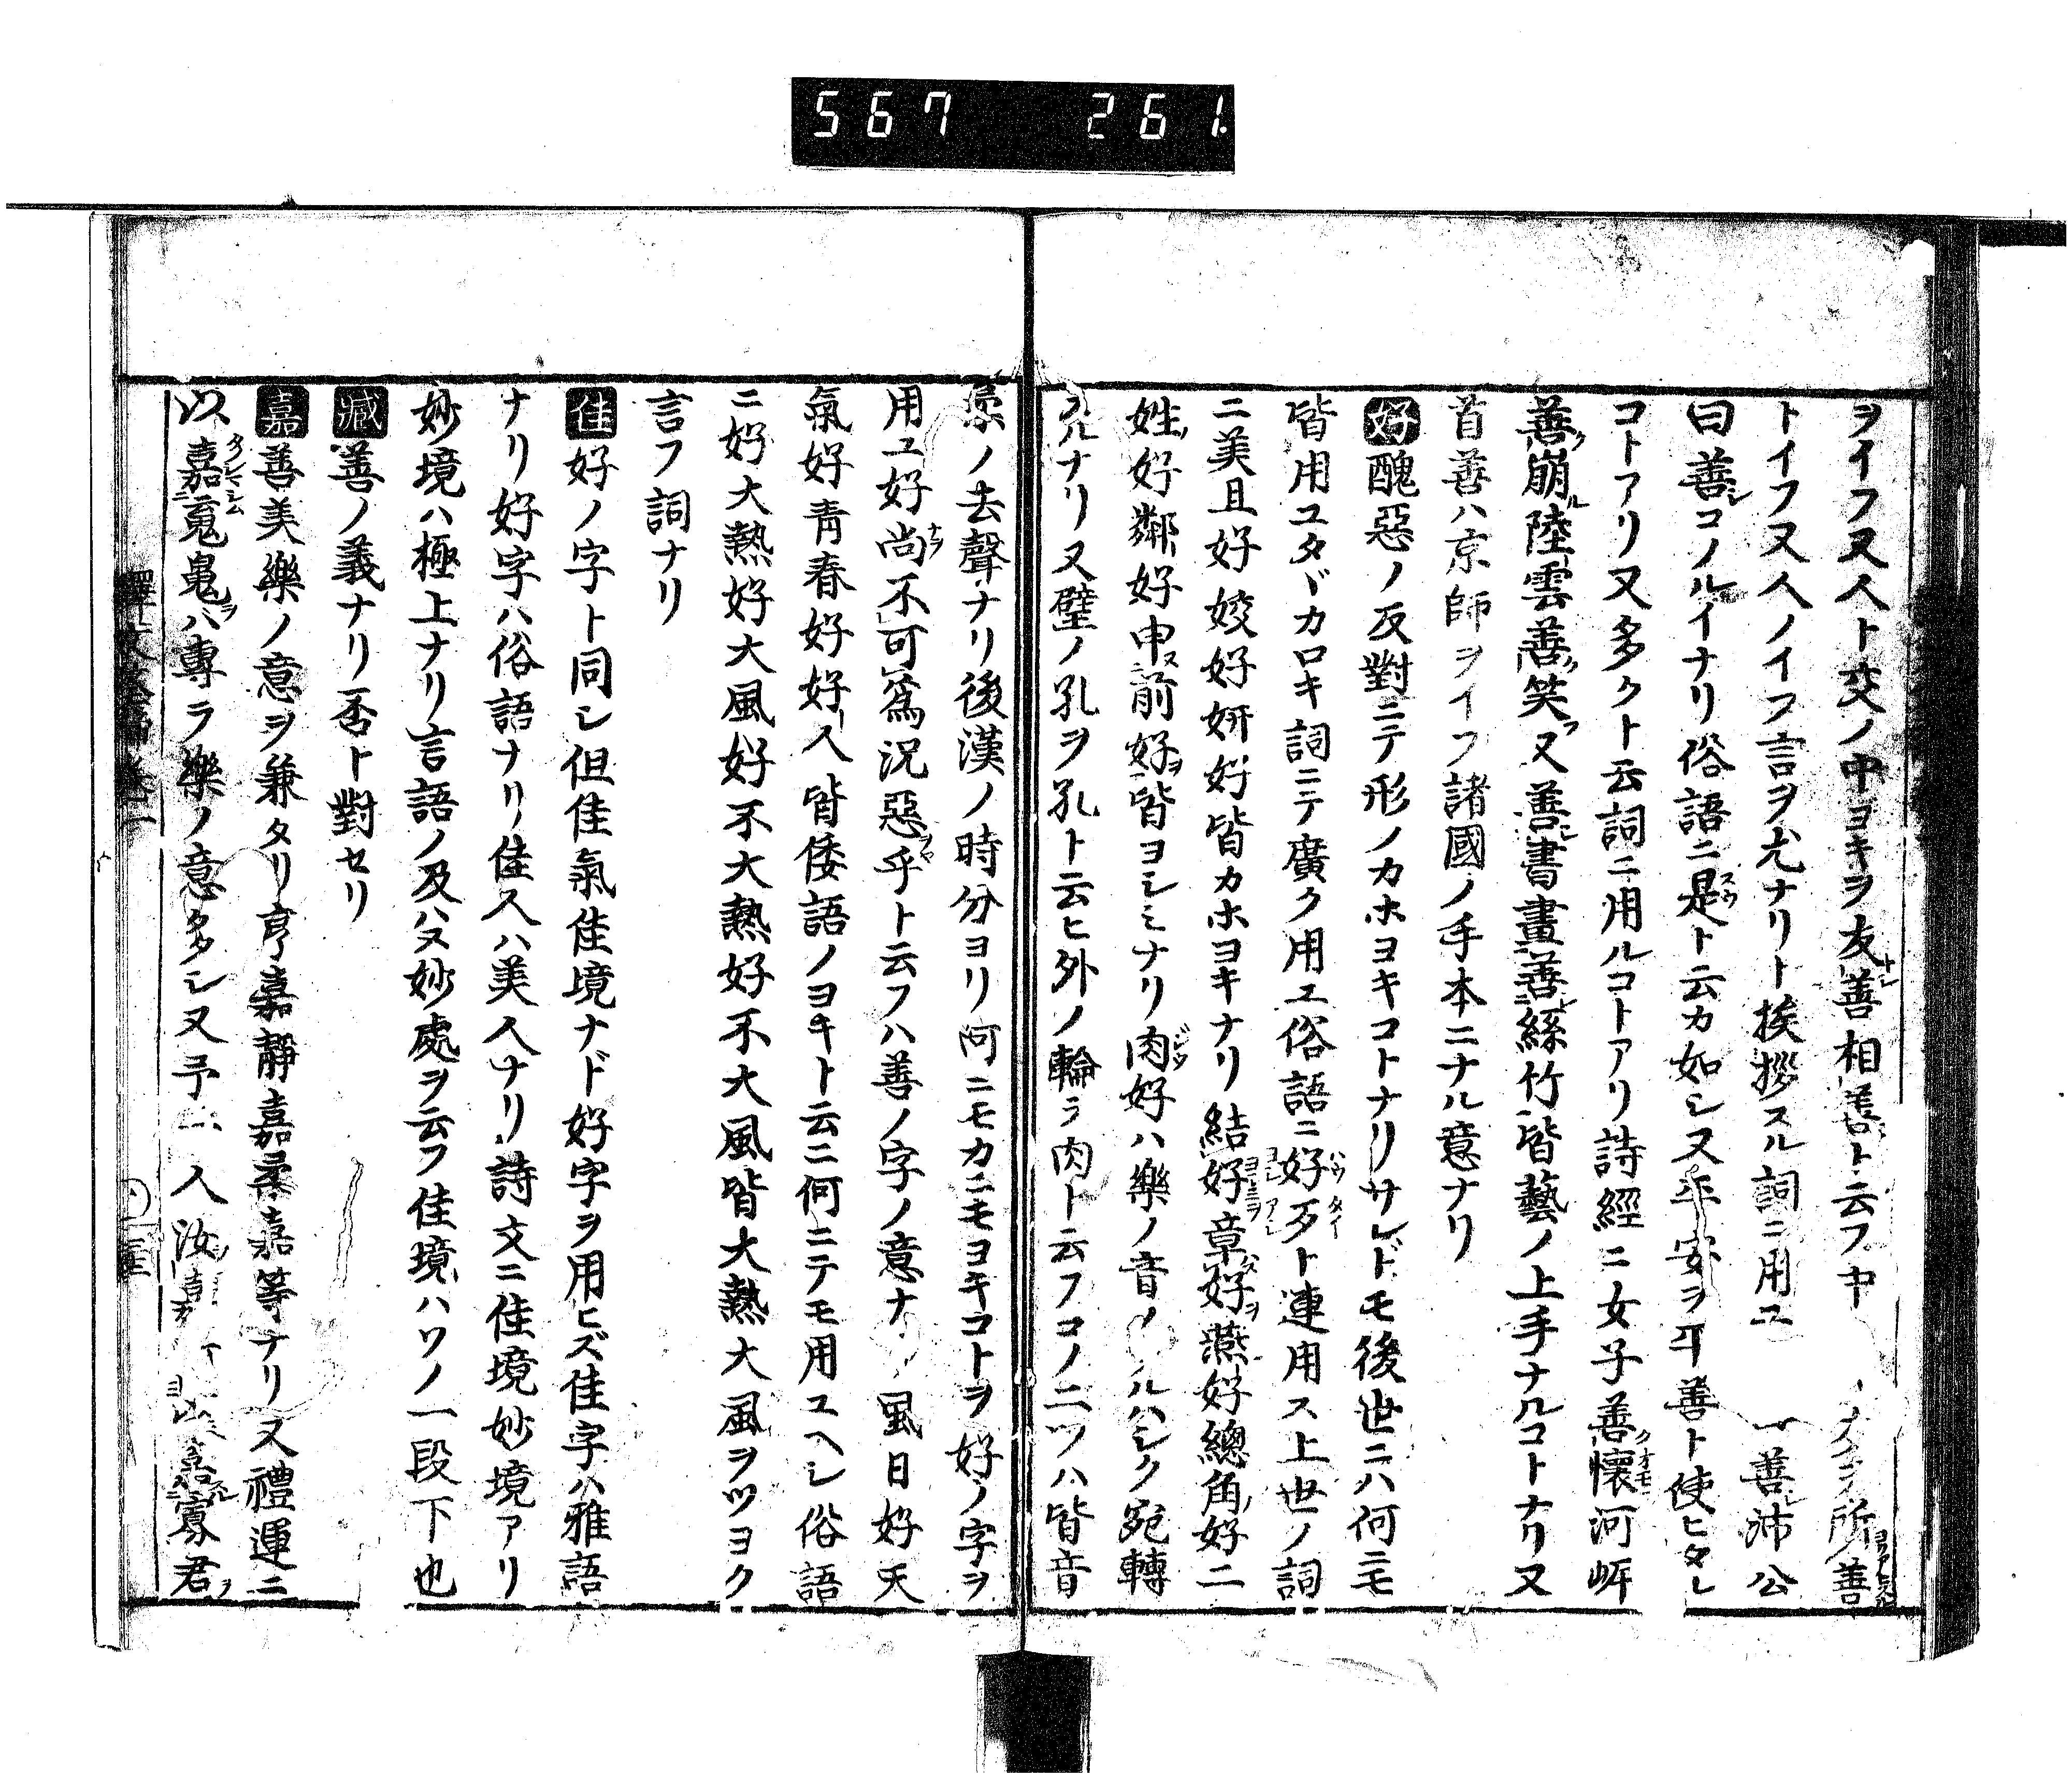 567 261
ヲイフ又人ト交ノ中ヨキヲ友善相善ト云フ中 所善
トイフ又人ノイフ言ヲ尤ナリト挨拶スル詞ニ用ユ 善沛公
曰善コノルイナリ俗語ニ是ト云カ如シ又平安ヲ平善ト使ヒタレ
コトアリ又多クト云詞ニ用ルコトアリ詩經ニ女子善懷河岍
善崩陸雲善笑又善書畫善絲竹皆藝ノ上手ナルコトナリ又
首善ハ京師ヲイフ諸國ノ手本ニナル意ナリ
好醜惡ノ反對ニテ形ノカホヨキコトナリサレドモ後世ニハ何ニモ
皆用ユタヾカロキ詞ニテ廣ク用ユ俗語ニ好歹ト連用ス上世ノ詞
ニ美且好姣好妍好皆カホヨキナリ結好章好燕好總角好二
姓好鄰好申前好皆ヨシミナリ肉好ハ樂ノ音ノ ルハシク宛轉
スルナリ又璧ノ孔ヲ孔ト云ヒ外ノ輪ヲ肉ト云フコノ二ツハ皆音
ノ去聲ナリ後漢ノ時分ヨリ何ニモカニモヨキコトヲ好ノ字ヲ
用ユ好尚不可爲況惡乎ト云フハ善ノ字ノ意ナ 風日好天
氣好青春好好人皆倭語ノヨキト云ニ何ニテモ用ユヘシ俗語
ニ好大熱好大風好不大熱好不大風皆大熱大風ヲツヨク
言フ詞ナリ
佳好ノ字ト同シ但佳氣佳境ナド好字ヲ用ヒズ佳字ハ雅語
ナリ好字ハ俗語ナリ佳人ハ美人ナリ詩文ニ佳境妙境アリ
妙境ハ極上ナリ言語ノ及ハヌ妙處ヲ云フ佳境ハソノ一段下也
臧善ノ義ナリ否ト對セリ
嘉善美樂ノ意ヲ兼タリ亨嘉靜嘉柔嘉嘉等ナリ又禮運ニ
以嘉䰟魄ハ專ラ樂ノ意多シ又予一人汝嘉 嘉寡君